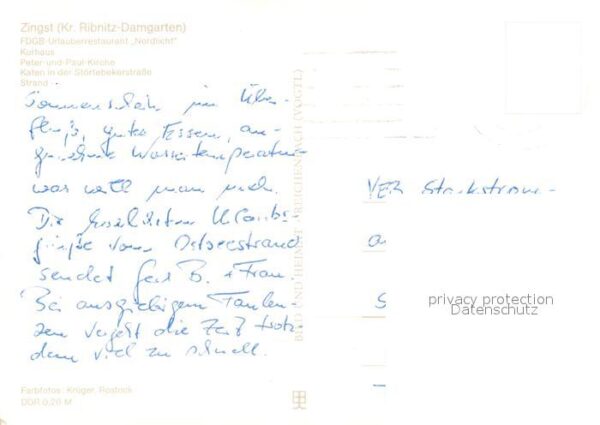 Zingst (Kr. Ribnitz-Damgarten)
FDGB-Urlauberrestaurant „Nordlicht"
Kurhaus
Peter-und-Paul-Kirche
Katen in der Störtebekerstraße
Strand
Sonnenschein im Über-
fluß, gutes Essen, an-
genehme Wassertemperatur
was will man mehr.
Die herzlichsten Urlaubs-
grüße vom Ostseestrand
sendet B. + Frau.
Bei ausgiebigem Faulen-
zen vergeht die Zeit trotz-
dem viel zu schnell.
BILD UND HEIMAT REICHENBACH (VOGTL)
VEB
privacy protection
Datenschutz
Farbfotos: Krüger, Rostock
DDR 0,20 M